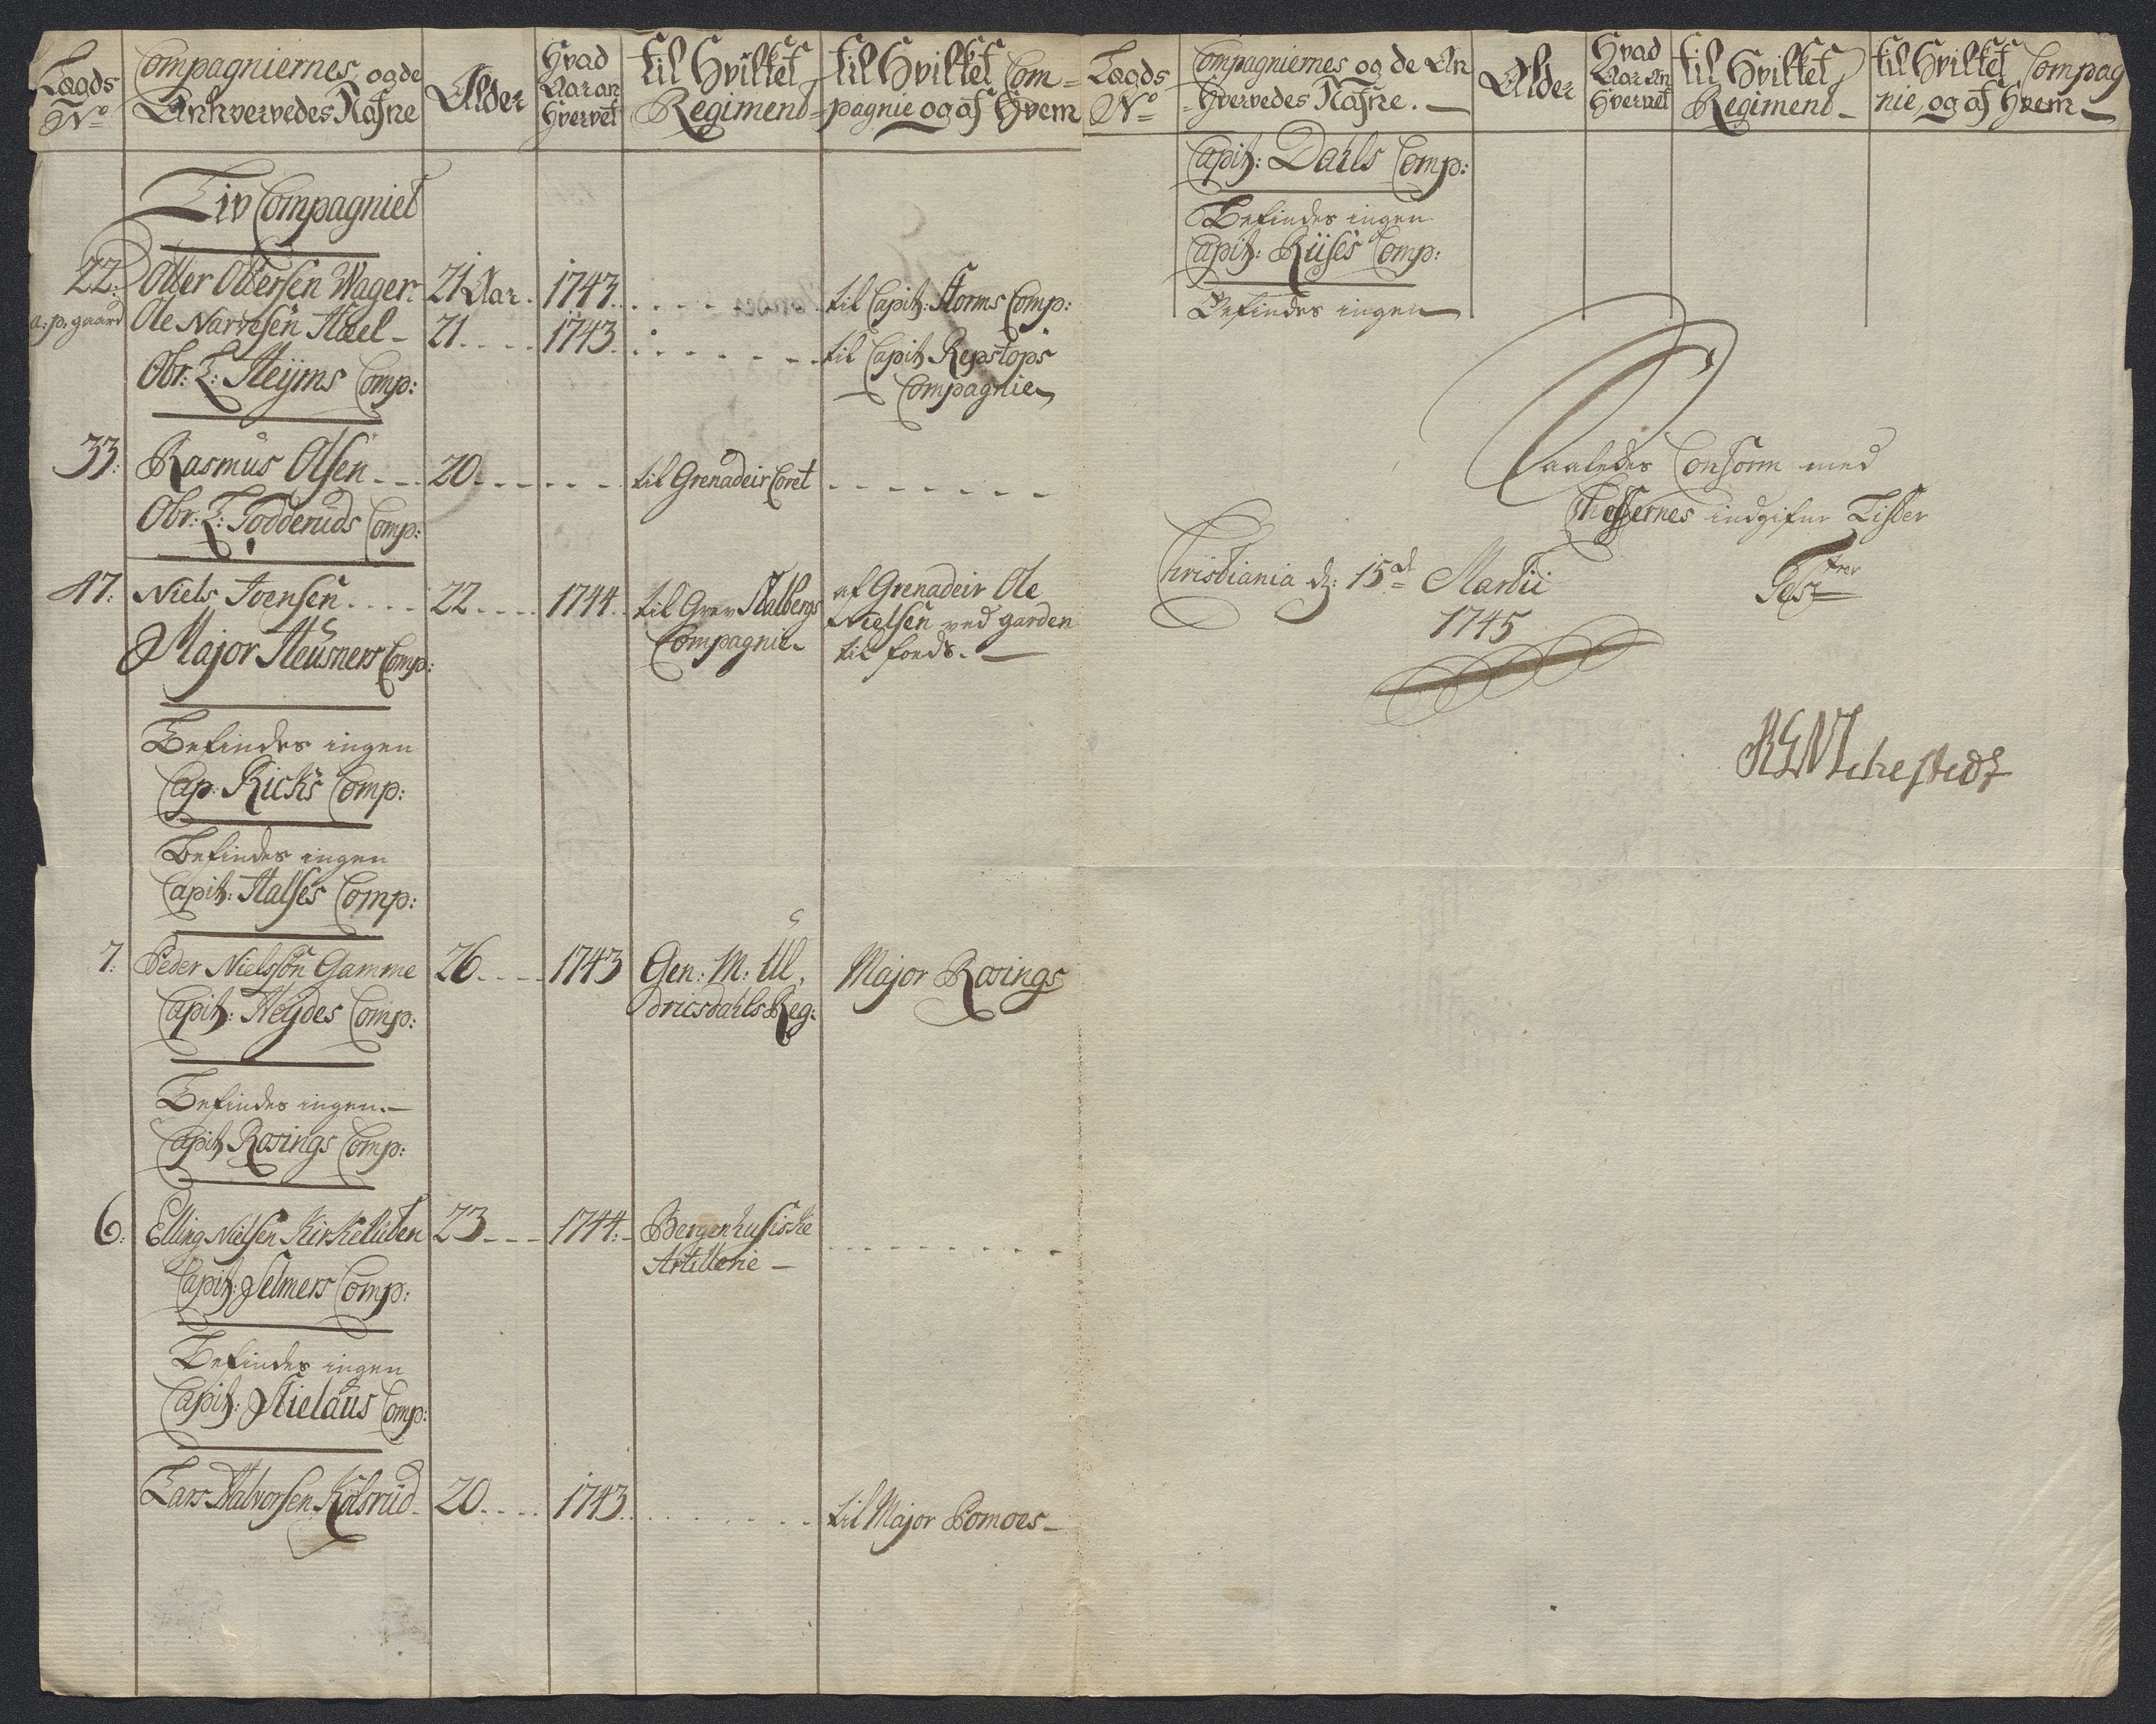 Lægds
No
Compagniernes og de
Anhvervedes Nafne
Alder
Hvad
Aar an
Hvervet
til Hvilket
Regiment
til Hvilket Com-
pagnie og af Hvem
Liv Compagniet
22. Otter Ottersen Wager 21 Aar. 1743. til Capit: Storms Comp:
a: p: gaard Ole Narvesen Stael 21 1743 til Capit Repstops
Compagnie
Obr: L: Heÿms Comp:
33: Rasmus Olsen 20 til Grenadeir Coret
Obr: L: Todderuds Comp:
47: Niels Joensen 22 1744 til Grev Stalbergs af Grenadeir Ole
Compagnie Nielsen ved garden
til fonds.
Major Heusners Comp:
Befindes ingen
Cap. Ricks Comp:
Befindes ingen
Capit: Halses Comp:
7: Peder Nielssön Gamme 26 1743 Gen: M: Ul, Major Rosings
dricsdahls Reg:
Capit: Heÿdes Comp:
Befindes ingen
Capit Rosings Comp:
6: Elling Nielsen Kirketuten 23 1744: Bergenhusiske
Artillerie
Capit: Selmers Comp:
Befindes ingen
Capit: Nielaus Comp:
Lars Halvorsen Kolsrud 20 1743 til Major Pomoes
Lægds
No
Compagniernes og de An
Hvervedes Nafne.
Alder
Hvad
Aar An
Hvervet
til Hvilket
Regiment
til Hvilket Compag
nie og af Hvem
Capit: Dahls Comp:
Befindes ingen
Capit: Riises Comp:
Befindes ingen
Saaledes Conform med
Cheffernes indgifne Lister
Christiania d: 15de Martii
1745
Test